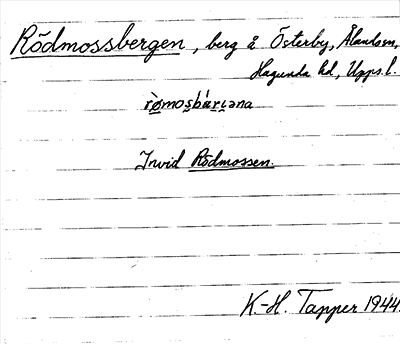 Rödmossbergen, berg å Österby, Ålandsn,
Hagunda hd, Upps. l.
rò̤mos̤bár̤i̤əna
Invid Rödmossen.
K.-H. Tapper 1944.